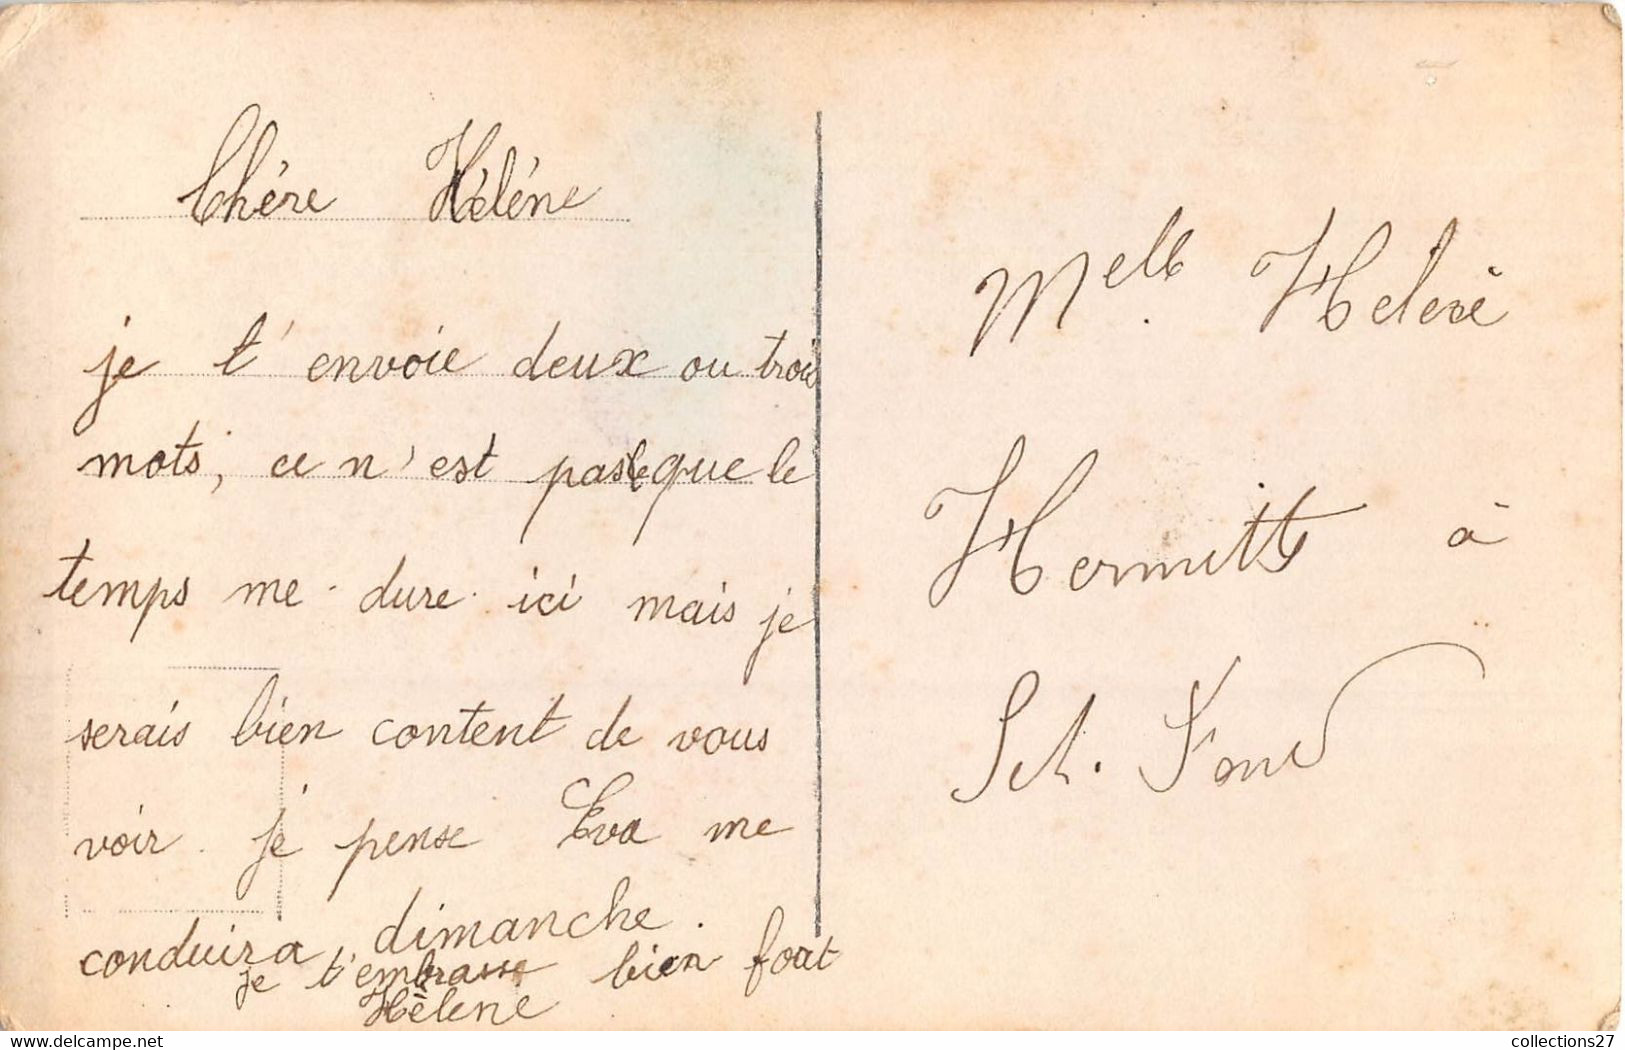 Chére Héléne
je t'envoie deux ou trois
mots, ce n'est pas que le
temps me dure ici mais je
serais bien content de vous
voir. je pense Eva me
conduira dimanche.
je t'embrasse bien fort
Hélene
Melle Helene
Hermitte à
Sct.
collections27